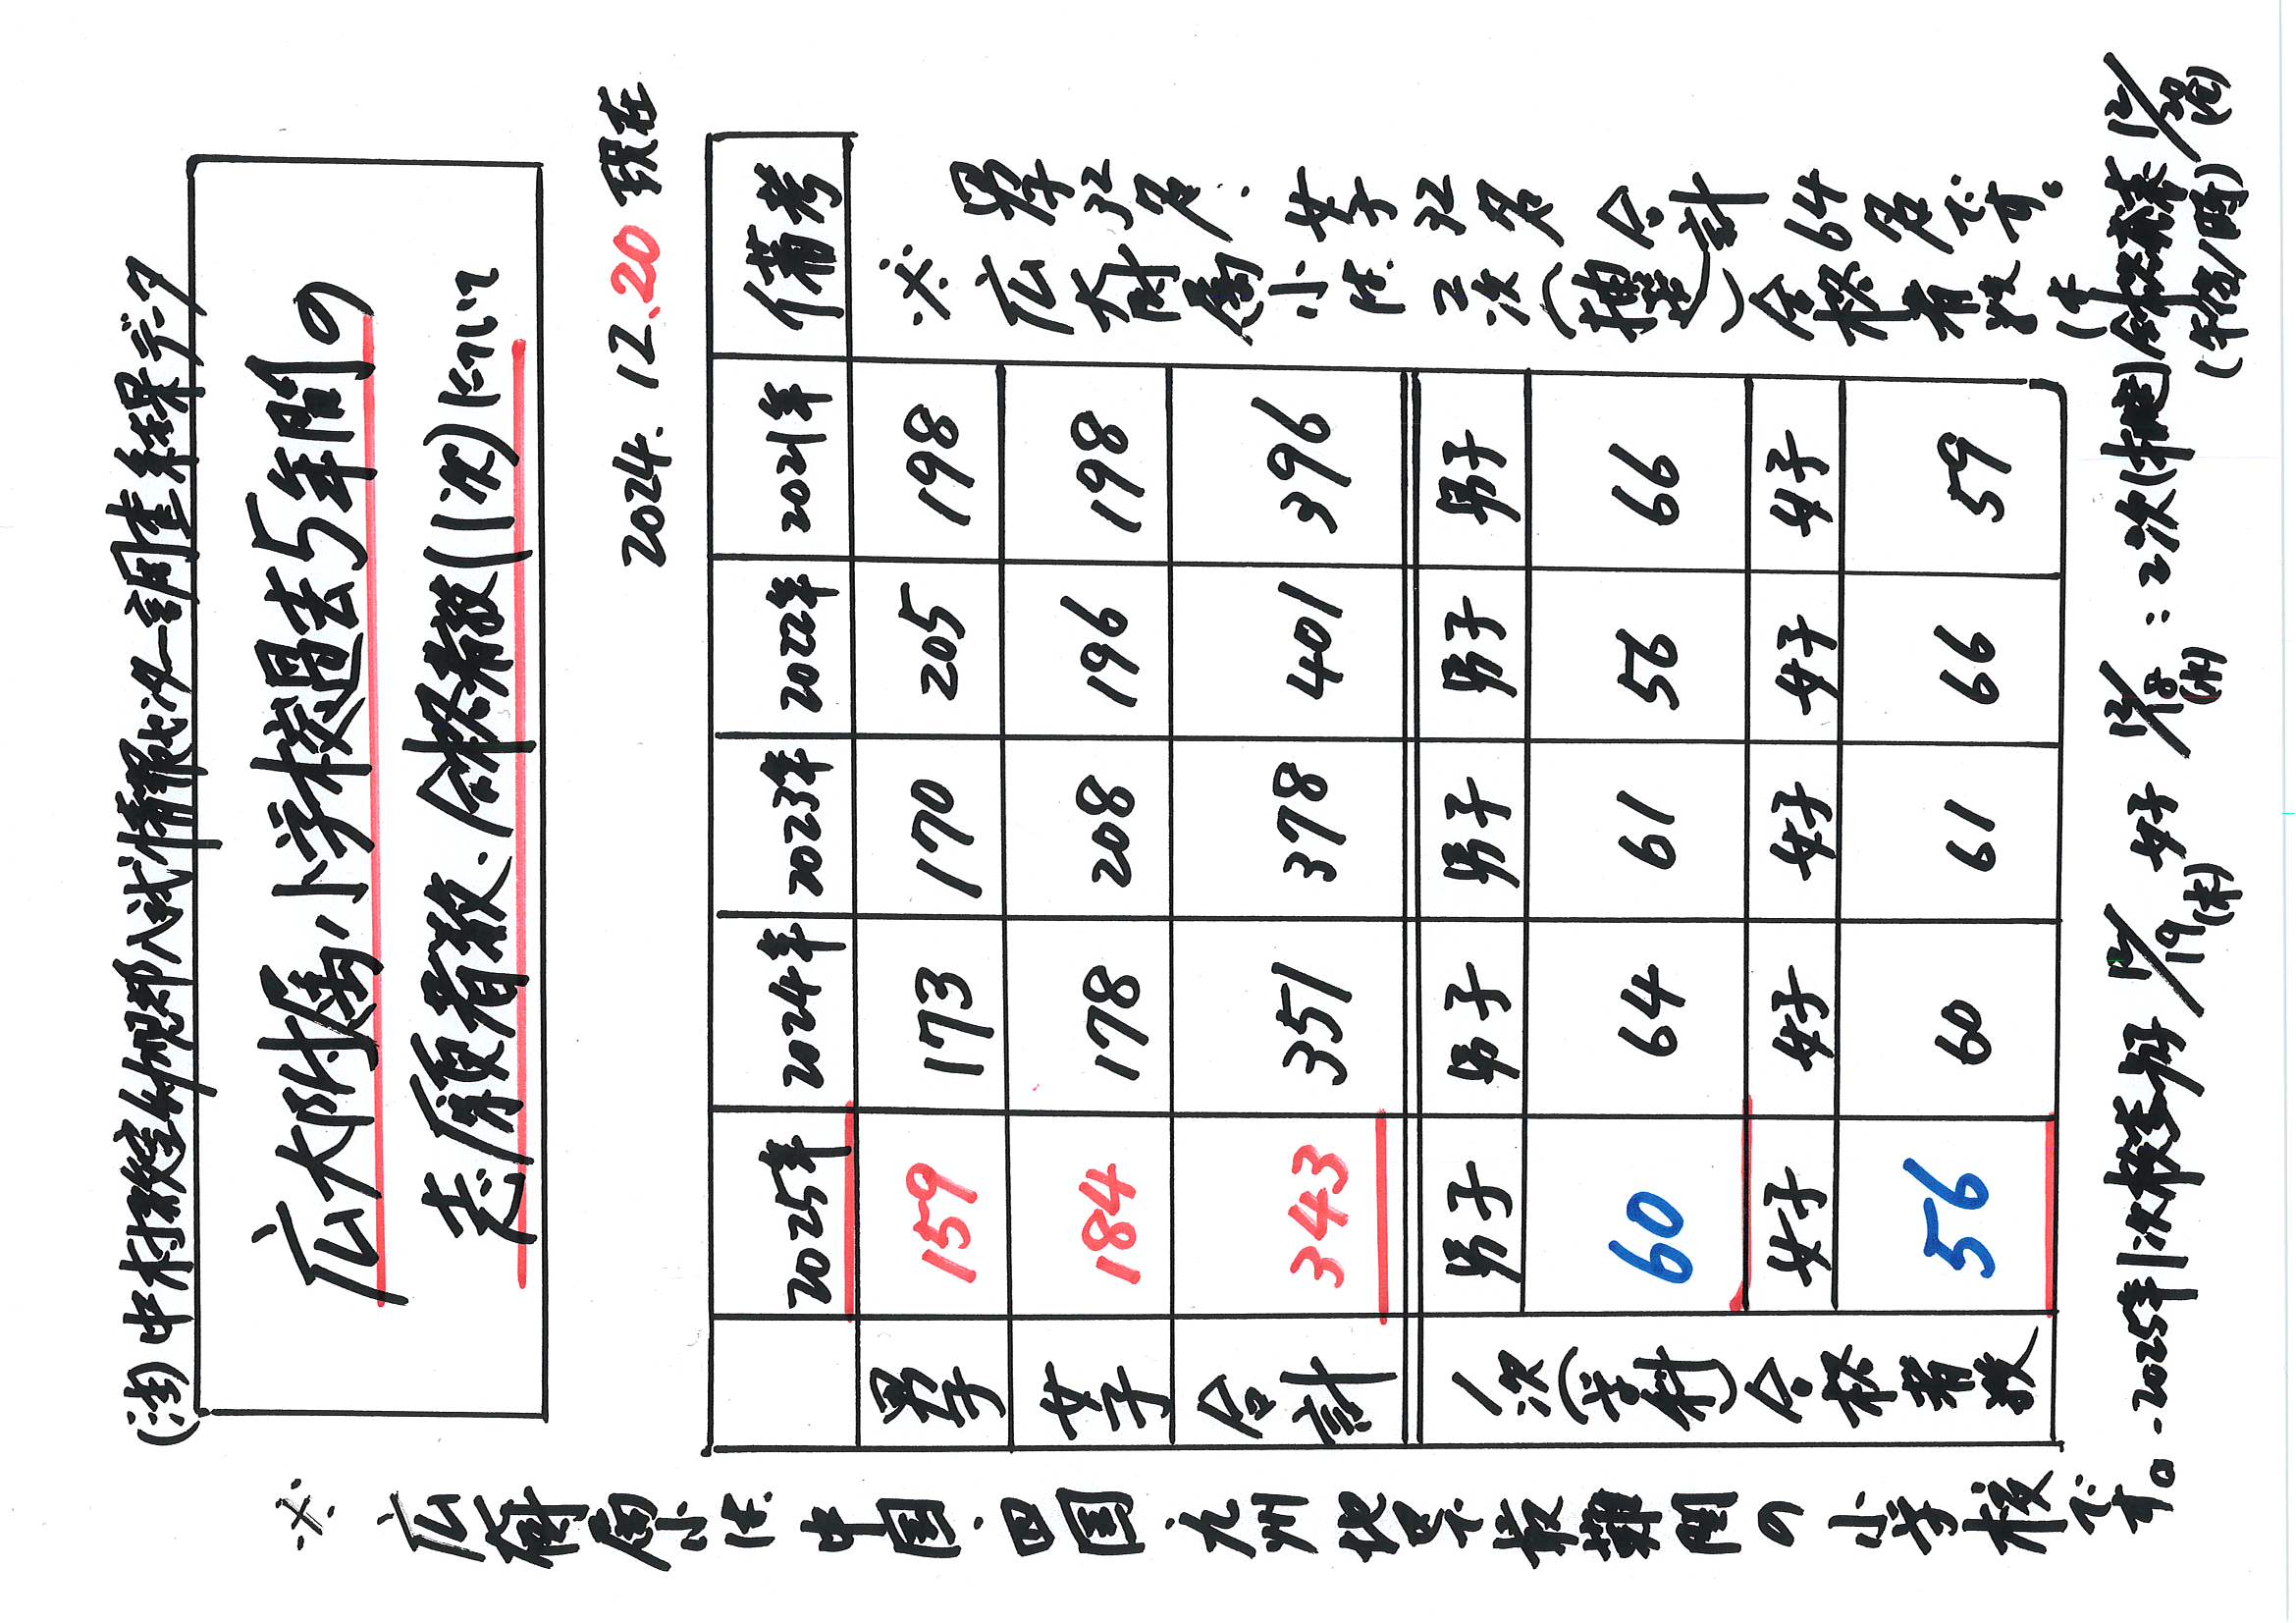 (注)中村教室幼児部入試情報センター調査結果データ
広大附属小学校過去5年間の
志願者数・合格者数(1次)について
2024.12.20 現在
2025年 2024年 2023年 2022年 2021年 備考
男子 159 173 170 205 198
女子 184 178 208 196 198
合計 343 351 378 401 396
1次(学科)合格者数
男子 男子 男子 男子 男子
60 64 61 56 66
女子 女子 女子 女子 女子
56 60 61 66 59
※広大附属小は2次(抽選)合格者数は
男子32名・女子32名合計64名です。
※広大附属小は中国・四国・九州地区で最難関の小学校です。
・2025年1次検査 男子12/19(木) 女子12/18(水):2次(抽選)合格発表12/20(金)
(午後1時)